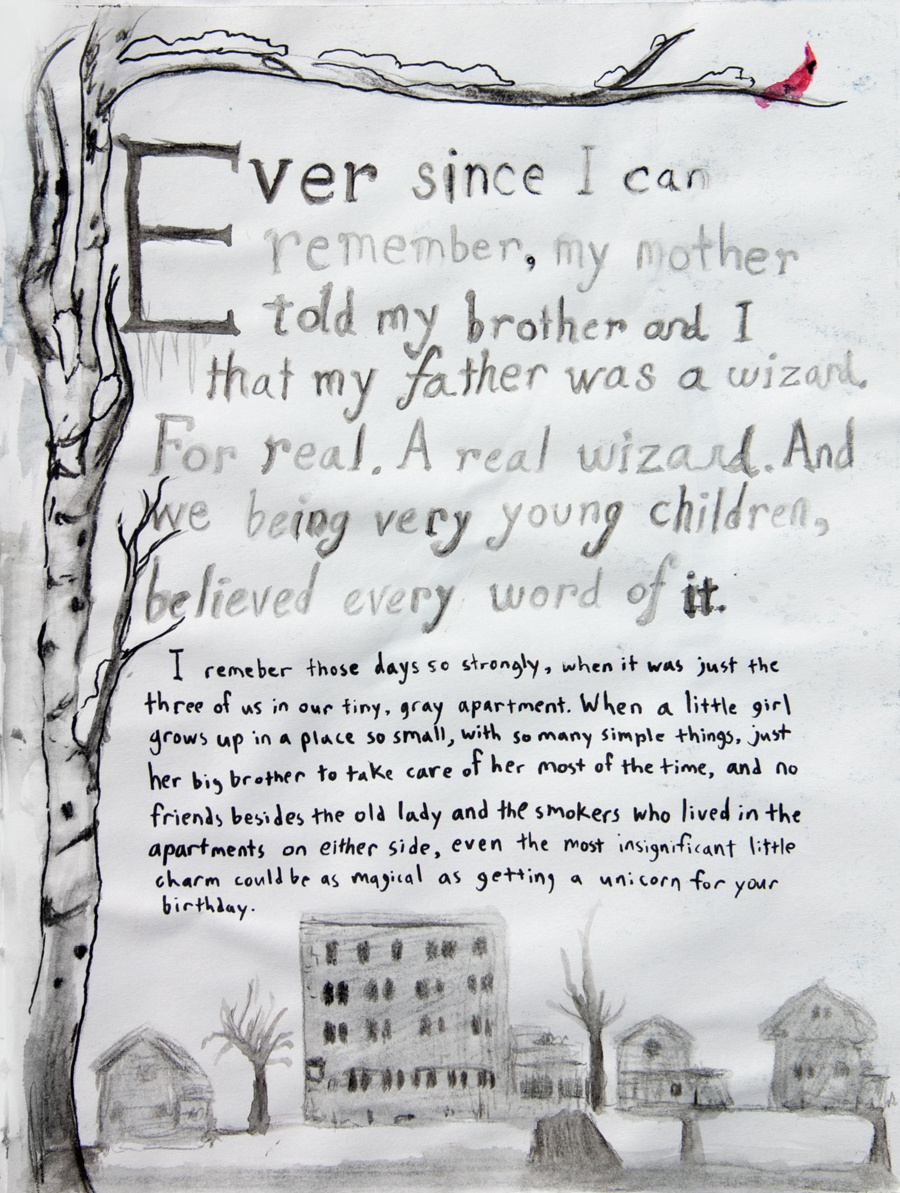 Ever since I can
remember, my mother
told my brother and I
that my father was a wizard.
For real. A real wizard. And
we being very young children,
believed every word of it.
I remeber those days so strongly, when it was just the
three of us in our tiny, gray apartment. When a little girl
grows up in a place so small, with so many simple things, just
her big brother to take care of her most of the time, and no
friends besides the old lady and the smokers who lived in the
apartments on either side, even the most insignificant little
charm could be as magical as getting a unicorn for your
birthday.